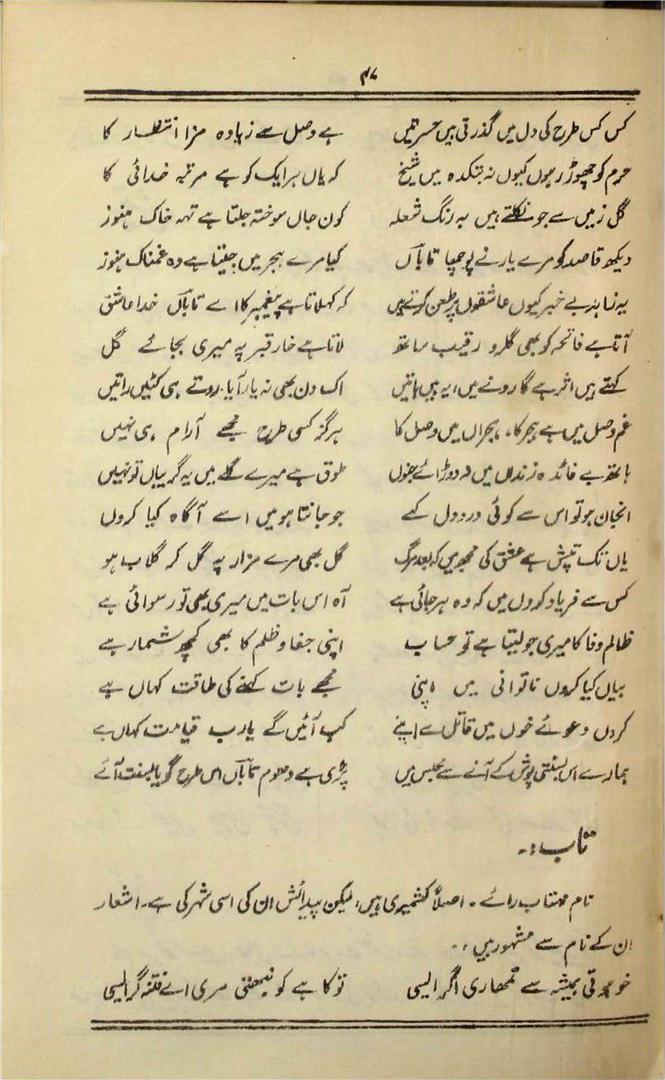 ۴۷
کس کس طرح کی دل میں گذرتی ہیں حسرتیں ہے وصل سے زیادہ مزا انتظار کا
حرم کو چھوڑ رہوں کیوں نہ بتکدہ میں شیخ کہ یاں ہر ایک کو ہے مرتبہ خدائی کا
گل زمیں سے جو نکلتے ہیں بہ رنگ شعلہ کون جاں سوختہ جلتا ہے تہہ خاک ہنوز
دیکھ قاصد کو مرے یار نے پوچھا تاباںؔ کیا مرے ہجر میں جیتا ہے وہ غمناک ہنوز
یہ زاہد بے خبر کیوں عاشقوں پر طعن کرتے ہیں کہ کہلاتا ہے پیغمبر کا اے تاباںؔ خدا عاشق
آتا ہے فاتحہ کو بھی گلرو رقیب ساتھ لاتا ہے خار قبر پہ میری بجائے گل
کہتے ہیں اثر ہے گا رونے میں، یہ ہیں باتیں اک دن بھی نہ یار آیا روتے ہی کٹیں راتیں
غم وصل میں ہے ہجر کا، ہجراں میں وصل کا ہرگز کسی طرح مجھے آرام ہی نہیں
ہاتھ بے فائدہ زنداں میں نہ دوڑائے جنوں طوق ہے میرے گلے میں یہ گریباں تو نہیں
انجان ہو تو اس سے کوئی درد دل کہے جو جانتا ہو میں اسے آگاہ کیا کروں
یاں تک تپش ہے عشق کی مجھ میں کہ بعد مرگ گل بھی مرے مزار پہ گل کر گلاب ہو
کس سے فریاد کروں میں کہ وہ ہرجائی ہے آہ اس بات میں میری بھی تو رسوائی ہے
ظالم وفا کا میری جو لیتا ہے تو حساب اپنی جفا و ظلم کا بھی کچھ شمار ہے
بیاں کیا کروں ناتوانی میں اپنی مجھے بات کہنے کی طاقت کہاں ہے
کروں دعوئے خوں میں قاتل سے اپنے کب آئیں گے یارب قیامت کہاں ہے
ہمارے اس بسنتی پوش کے آنے سے مجلس میں پڑی ہے دھوم تاباںؔ اس طرح گویا بسنت آئے
تاب :۔
نام مہتاب رائے۔ اصلاً کشمیری ہیں، لیکن پیدائش ان کی اسی شہر کی ہے۔ اشعار
ان کے نام سے مشہور ہیں :۔
خو ہوتی ہمیشہ سے تمھاری اگر ایسی تو کا ہے کو نبھتی مری اے فتنہ گر ایسی